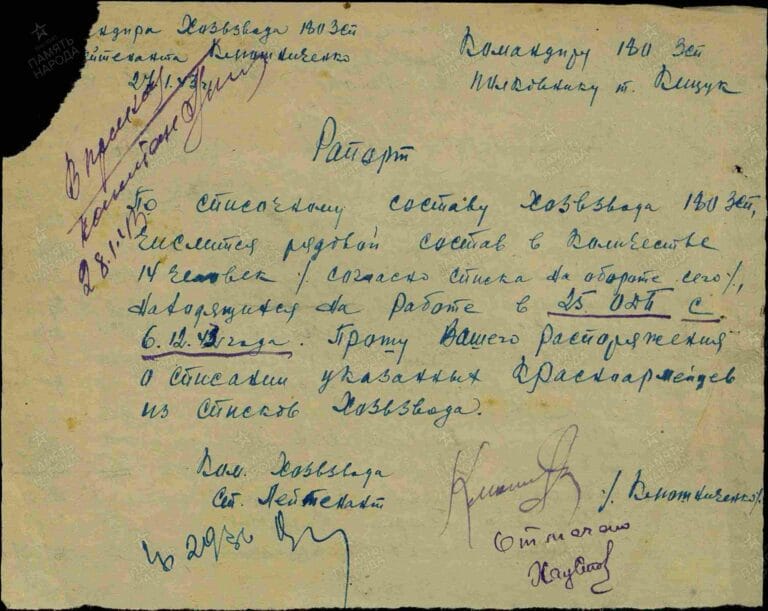 андира Хозвзвода 180 Зсп
ейтенанта Клютниченко
27.1.43 г
Командиру 180 Зсп
полковнику т.
В приказ
28.1.43
Рапорт
По списочному составу Хозвзвода 180 Зсп,
числится рядовой состав в количестве
14 человек /. согласно списка на обороте сего /.,
находящихся на работе в 25 ОПП с
6.12.43 года. Прошу Вашего распоряжения
о списании указанных красноармейцев
из списков Хозвзвода.
Ком. Хозвзвода
Ст. Лейтенант
/. Клютниченко /.
Отмечено
ПАМЯТЬ НАРОДА